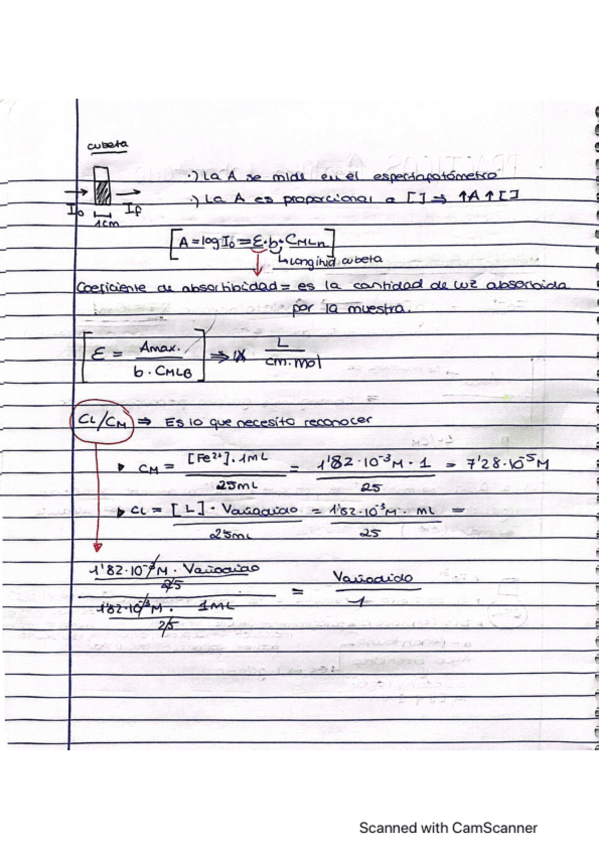 cubeta
·) La A se mide en el espectofotómetro
·) La A es proporcional a [ ] ⇒ ↑A ↑[ ]
I₀ If
1cm
[A = log I₀ = ε·b·CMLn]
↳ Longitud cubeta
Coeficiente de absortibidad = es la cantidad de luz absorbida
por la muestra.
[ε = Amax. / b · CMLB] ⇒ L / cm·mol
CL/CM ⇒ Es lo que necesito reconocer
▸ CM = [Fe²⁺]·1mL / 25mL = 1'82·10⁻³M·1 / 25 = 7'28·10⁻⁵M
▸ CL = [L]·Vañadido / 25mL = 1'82·10⁻³M· mL / 25 =
1'82·10⁻³M · Vañadido / 25
1'82·10⁻³M · 1mL / 25
= Vañadido / 1
Scanned with CamScanner